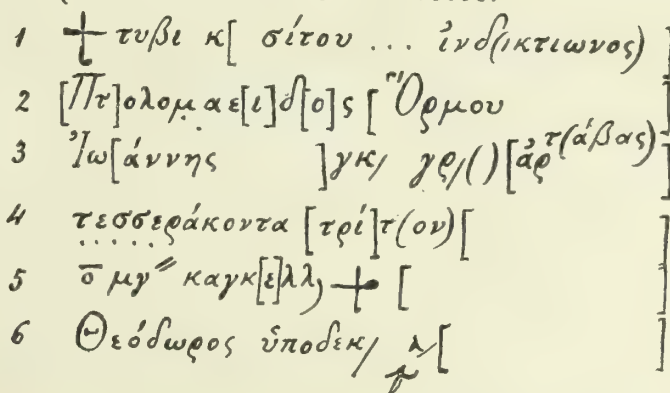 1 + τυβι κ[ σίτου ... ἰνδ(ικτιωνος) ]
2 [Πτ]ολομαε[ι]δ[ο]ς [Ὅρμου
3 Ἰω[άννης ]γκ/ γρ/()[ἀρτ(άβας) ]
4 τεσσεράκοντα [τρί]τ(ον)[ ]
5 ο̅ μγ″ καγκ[ε]λλ) + [ ]
6 Θεόδωρος ὑποδεκ/ [ ]